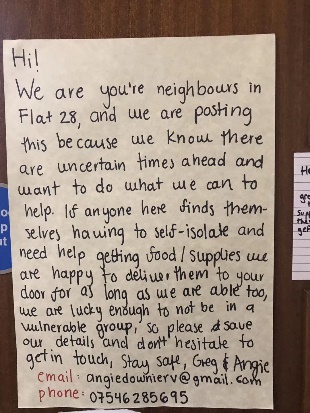 Hi!
We are you're neighbours in
Flat 28, and we are posting
this because we know there
are uncertain times ahead and
want to do what we can to
help. If anyone here finds them-
selves having to self-isolate and
need help getting food / supplies we
are happy to deliver them to your
door for as long as we are able too,
we are lucky enough to not be in a
vulnerable group, so please save
our details and don't hesitate to
get in touch, Stay safe, Greg & Angie
email: angiedownierv@gmail.com
phone: 07546285695